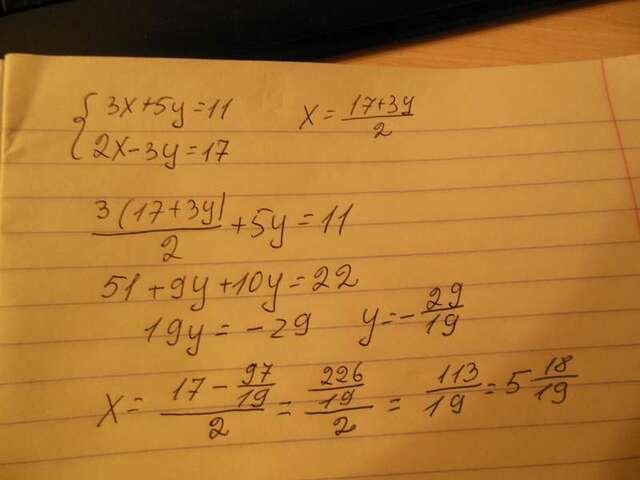 { 3x+5y=11
2x-3y=17
x = (17+3y)/2
3(17+3y|/2 +5y = 11
51+9y+10y=22
19y = -29 y = - 29/19
x = (17 - 97/19)/2 = (226/19)/2 = 113/19 = 5 18/19